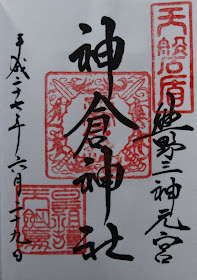 天磐盾
熊野三神元宮
神倉神社
平成二十七年六月二十九日